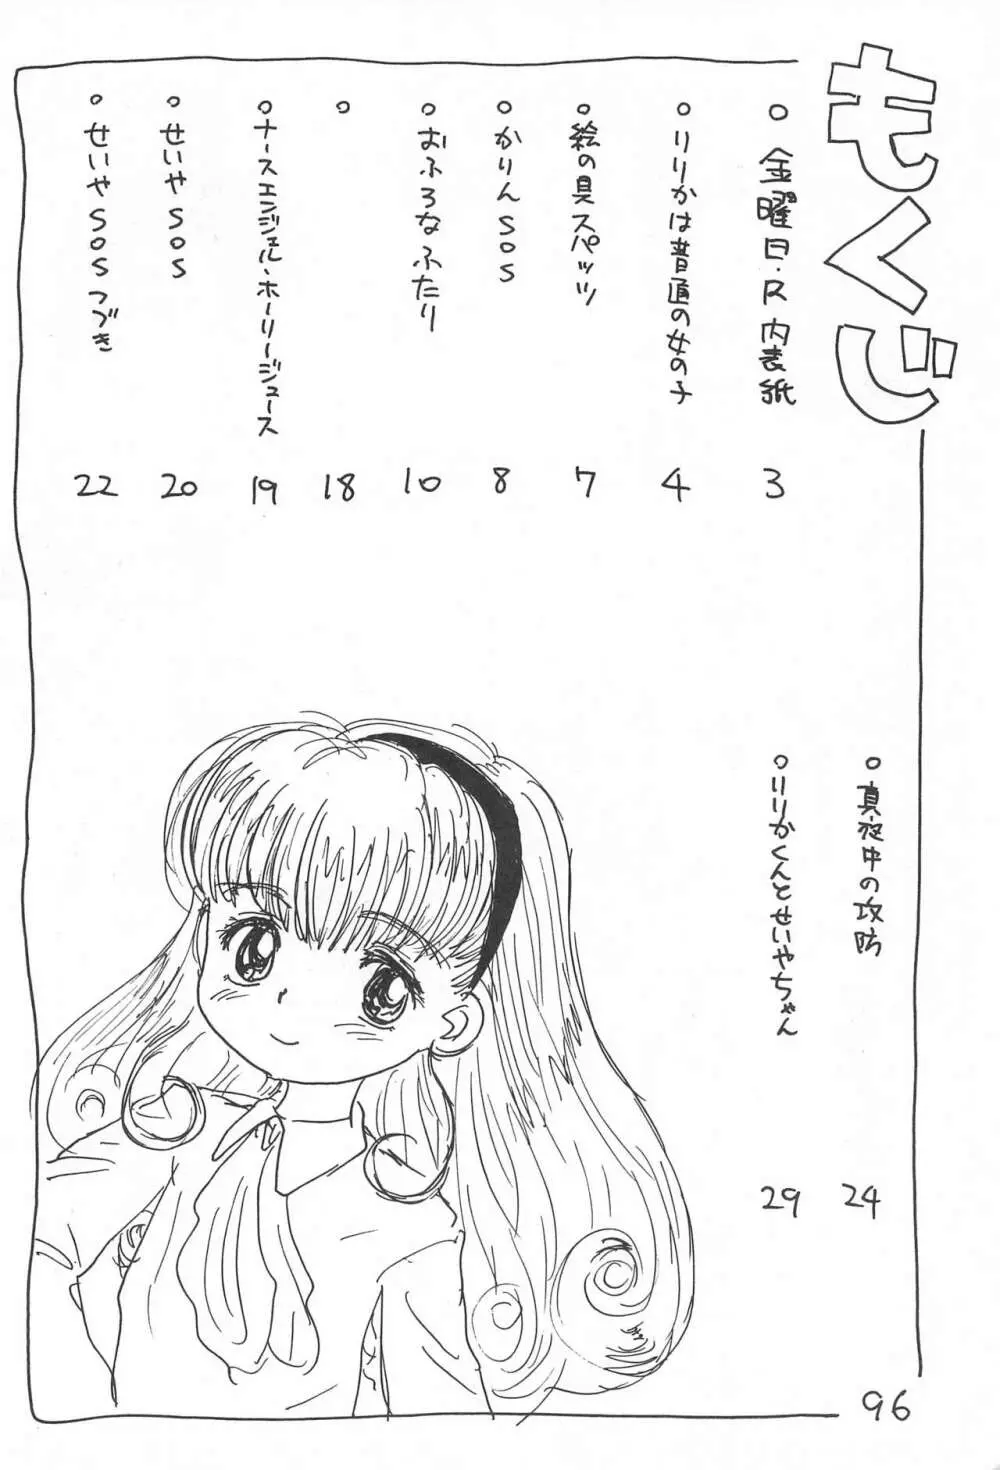 もくじ
○ 金曜日・R 内表紙 3
○ りりかは普通の女の子 4
○ 絵の具スパッツ 7
○ かりんSOS 8
○ おふろなふたり 10
○ 18
○ ナースエンジェル・ホーリージュース 19
○ せいやSOS 20
○ せいやSOSつづき 22
○ 真夜中の攻防 24
○ りりかくんとせいやちゃん 29
96